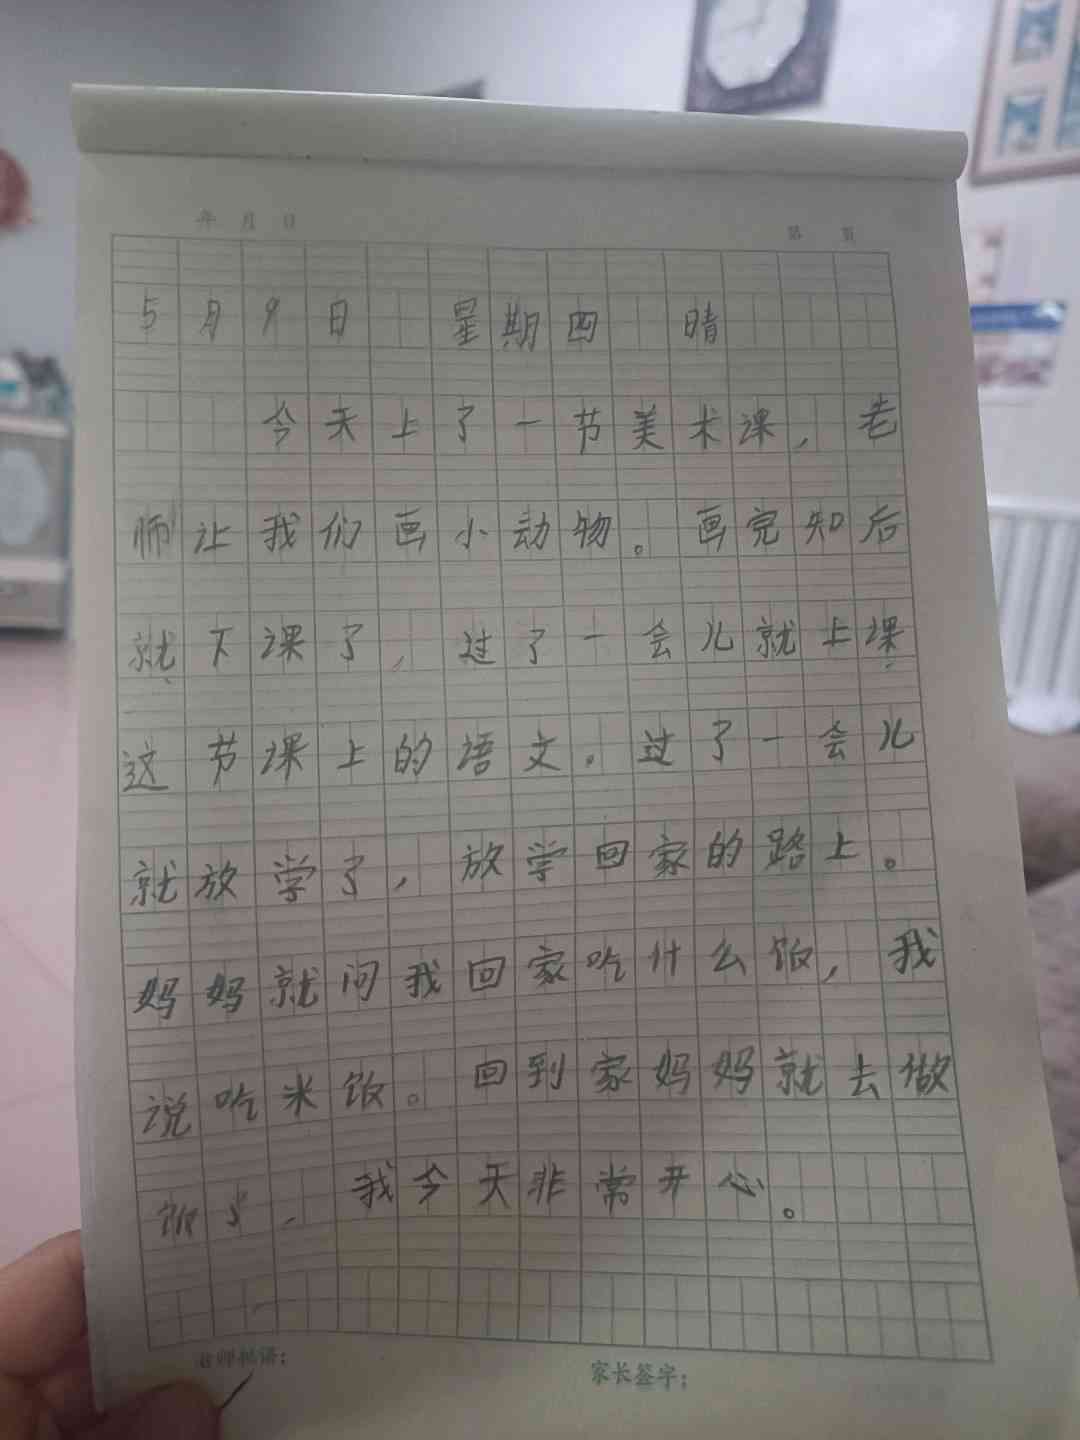 年 月 日 第 页
5月9日 星期四 晴
今天上了一节美术课，老
师让我们画小动物。画完知后
就下课了，过了一会儿就上课，
这节课上的语文。过了一会儿
就放学了，放学回家的路上。
妈妈就问我回家吃什么饭，我
说吃米饭。回到家妈妈就去做
饭了，我今天非常开心。
老师批语：
家长签字：